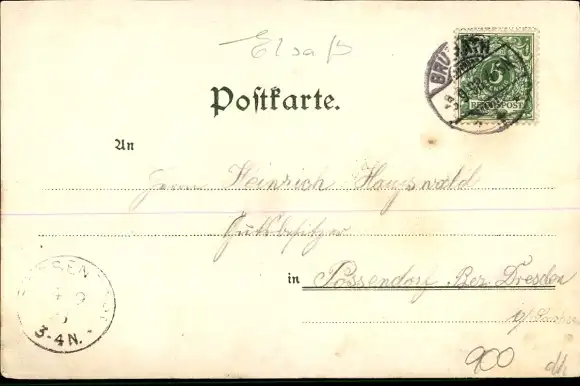 Elsaß
BRUMATH
5
REICHSPOST
Postkarte.
An
Herrn Heinrich Hauswald
Gutsbesitzer
in Possendorf Bez. Dresden
3-4N.
900